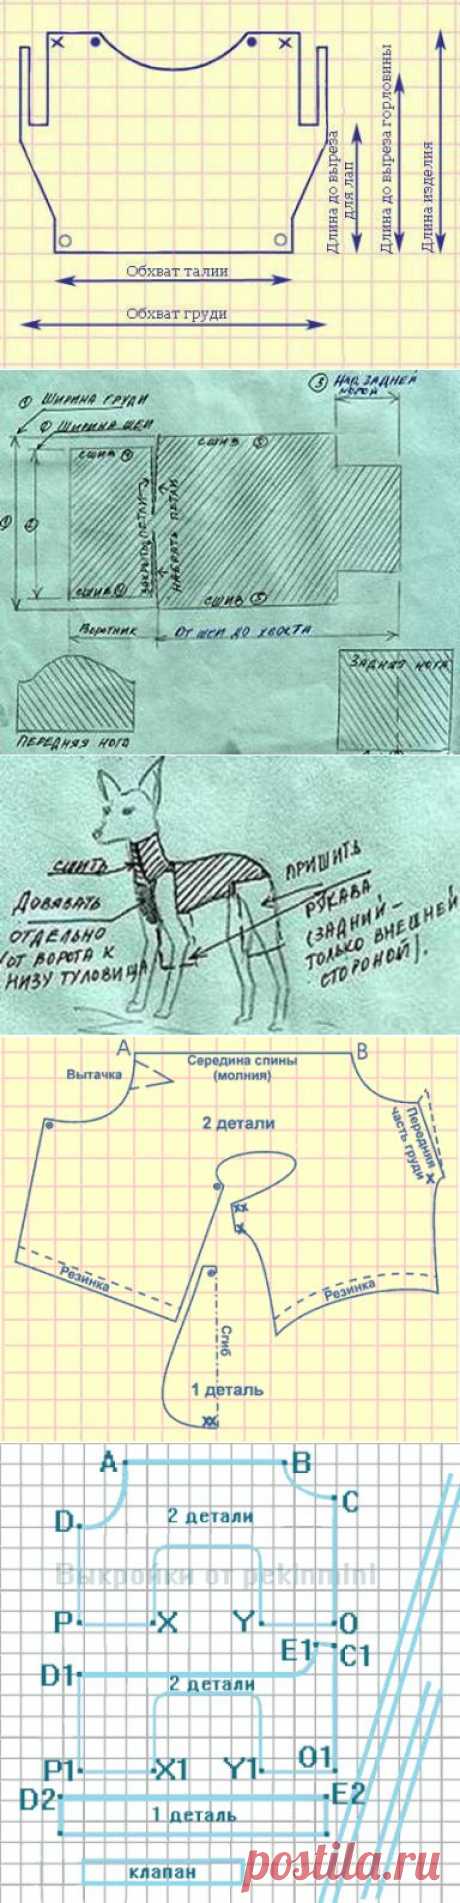 Длина до выреза
для лап
Длина до выреза горловины
Длина изделия
Обхват талии
Обхват груди
③ НАД ЗАДНЕЙ
НОГОЙ
① ШИРИНА ГРУДИ
② ШИРИНА ШЕИ
СШИВ ④
СШИВ ⑤
ЗАКРЫТЬ ПЕТЛИ
НАБРАТЬ ПЕТЛИ
① ②
СШИВ ④
СШИВ ⑤
Воротник
ОТ ШЕИ ДО ХВОСТА
ПЕРЕДНЯЯ НОГА
ЗАДНЯЯ НОГА
СШИТЬ
ДОВЯЗАТЬ
ОТДЕЛЬНО
ОТ ВОРОТА К
НИЗУ ТУЛОВИЩА
ПРИШИТЬ
РУКАВА
(ЗАДНИЙ –
ТОЛЬКО ВНЕШНЕЙ
СТОРОНОЙ).
A
B
Середина спины
(молния)
Вытачка
2 детали
Передняя
часть груди
Х
ХХ
Х
Резинка
Резинка
Сгиб
1 деталь
ХХ
A
B
C
D
2 детали
Выкройки от pekinmini
P
X
Y
O
E1
C1
D1
2 детали
P1
X1
Y1
O1
D2
E2
1 деталь
клапан
postila.ru